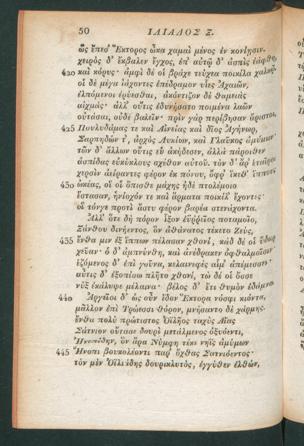 50 ΙΛΙΑΔΟΣ Ξ.
ὣς ἔπεσ' Ἕκτορος ὦκα χαμαὶ μένος ἐν κονίῃσιν.
χειρὸς δ' ἔκβαλεν ἔγχος, ἐπ' αὐτῷ δ' ἀσπὶς ἑάφθη,
420 καὶ κόρυς· ἀμφὶ δέ οἱ βράχε τεύχεα ποικίλα χαλκῷ.
οἱ δὲ μέγα ἰάχοντες ἐπέδραμον υἷες Ἀχαιῶν,
ἐλπόμενοι ἐρύεσθαι, ἀκόντιζον δὲ θαμειὰς
αἰχμάς· ἀλλ' οὔτις ἐδυνήσατο ποιμένα λαῶν
οὐτάσαι, οὐδὲ βαλεῖν· πρὶν γὰρ περίβησαν ἄριστοι,
425 Πουλυδάμας τε καὶ Αἰνείας καὶ δῖος Ἀγήνωρ,
Σαρπηδών τ', ἀρχὸς Λυκίων, καὶ Γλαῦκος ἀμύμων·
τῶν δ' ἄλλων οὔτις εὑ ἀκήδεσεν, ἀλλὰ πάροιθεν
ἀσπίδας εὐκύκλους σχέθον αὐτοῦ. τὸν δ' ἄρ' ἑταῖροι
χερσὶν ἀείραντες φέρον ἐκ πόνου, ὄφρ' ἵκεθ' ἵππους
430 ὠκέας, οἵ οἱ ὄπισθε μάχης ἠδὲ πτολέμοιο
ἕστασαν, ἡνίοχόν τε καὶ ἅρματα ποικίλ' ἔχοντες·
οἳ τόνγε προτὶ ἄστυ φέρον βαρέα στενάχοντα.
Ἀλλ' ὅτε δὴ πόρον ἷξον ἐϋῤῥεῖος ποταμοῖο,
Ξάνθου δινήεντος, ὃν ἀθάνατος τέκετο Ζεύς,
435 ἔνθα μιν ἐξ ἵππων πέλασαν χθονί, κὰδ δέ οἱ ὕδωρ
χεῦαν· ὁ δ' ἀμπνύνθη, καὶ ἀνέδρακεν ὀφθαλμοῖσιν·
ἑζόμενος δ' ἐπὶ γοῦνα, κελαινεφὲς αἷμ' ἀπέμεσσεν·
αὖτις δ' ἐξοπίσω πλῆτο χθονί, τὼ δέ οἱ ὄσσε
νὺξ ἐκάλυψε μέλαινα· βέλος δ' ἔτι θυμὸν ἐδάμνα.
440 Ἀργεῖοι δ' ὡς οὖν ἴδον Ἕκτορα νόσφι κιόντα,
μᾶλλον ἐπὶ Τρώεσσι θόρον, μνήσαντο δὲ χάρμης.
ἔνθα πολὺ πρώτιστος Ὀϊλῆος ταχὺς Αἴας
Σάτνιον οὔτασε δουρὶ μετάλμενος ὀξυόεντι,
Ἠνοπίδην, ὃν ἄρα Νύμφη τέκε νηῒς ἀμύμων
445 Ἤνοπι βουκολέοντι παρ' ὄχθας Σατνιόεντος·
τὸν μὲν Ὀϊλιάδης δουρικλυτός, ἐγγύθεν ἐλθών,